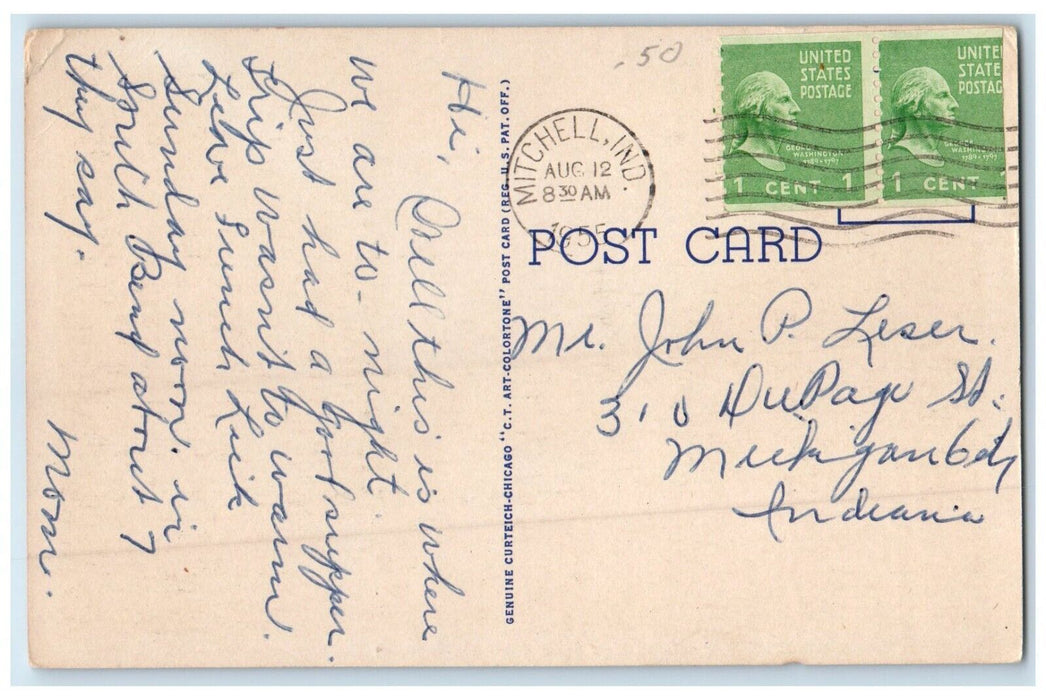 .50
UNITED
STATES
POSTAGE
GEORGE
WASHINGTON
1789-1797
1 CENT 1
UNITE
STATE
POSTAG
WASHINGTON
1789-1797
1 CENT 1
MITCHELL, IND.
AUG 12
8 30 AM
1955
POST CARD
Hi,
Well this is where
we are to-night.
Just had a good supper.
Trip wasn't to warm.
Leave French Lick
Sunday noon. in
South Bend about 7
they say.
Mom.
GENUINE CURTEICH-CHICAGO "C.T. ART-COLORTONE" POST CARD (REG. U.S. PAT. OFF.)
Mr. John P. Leser.
310 DuPage St.
Michigan City
Indiana